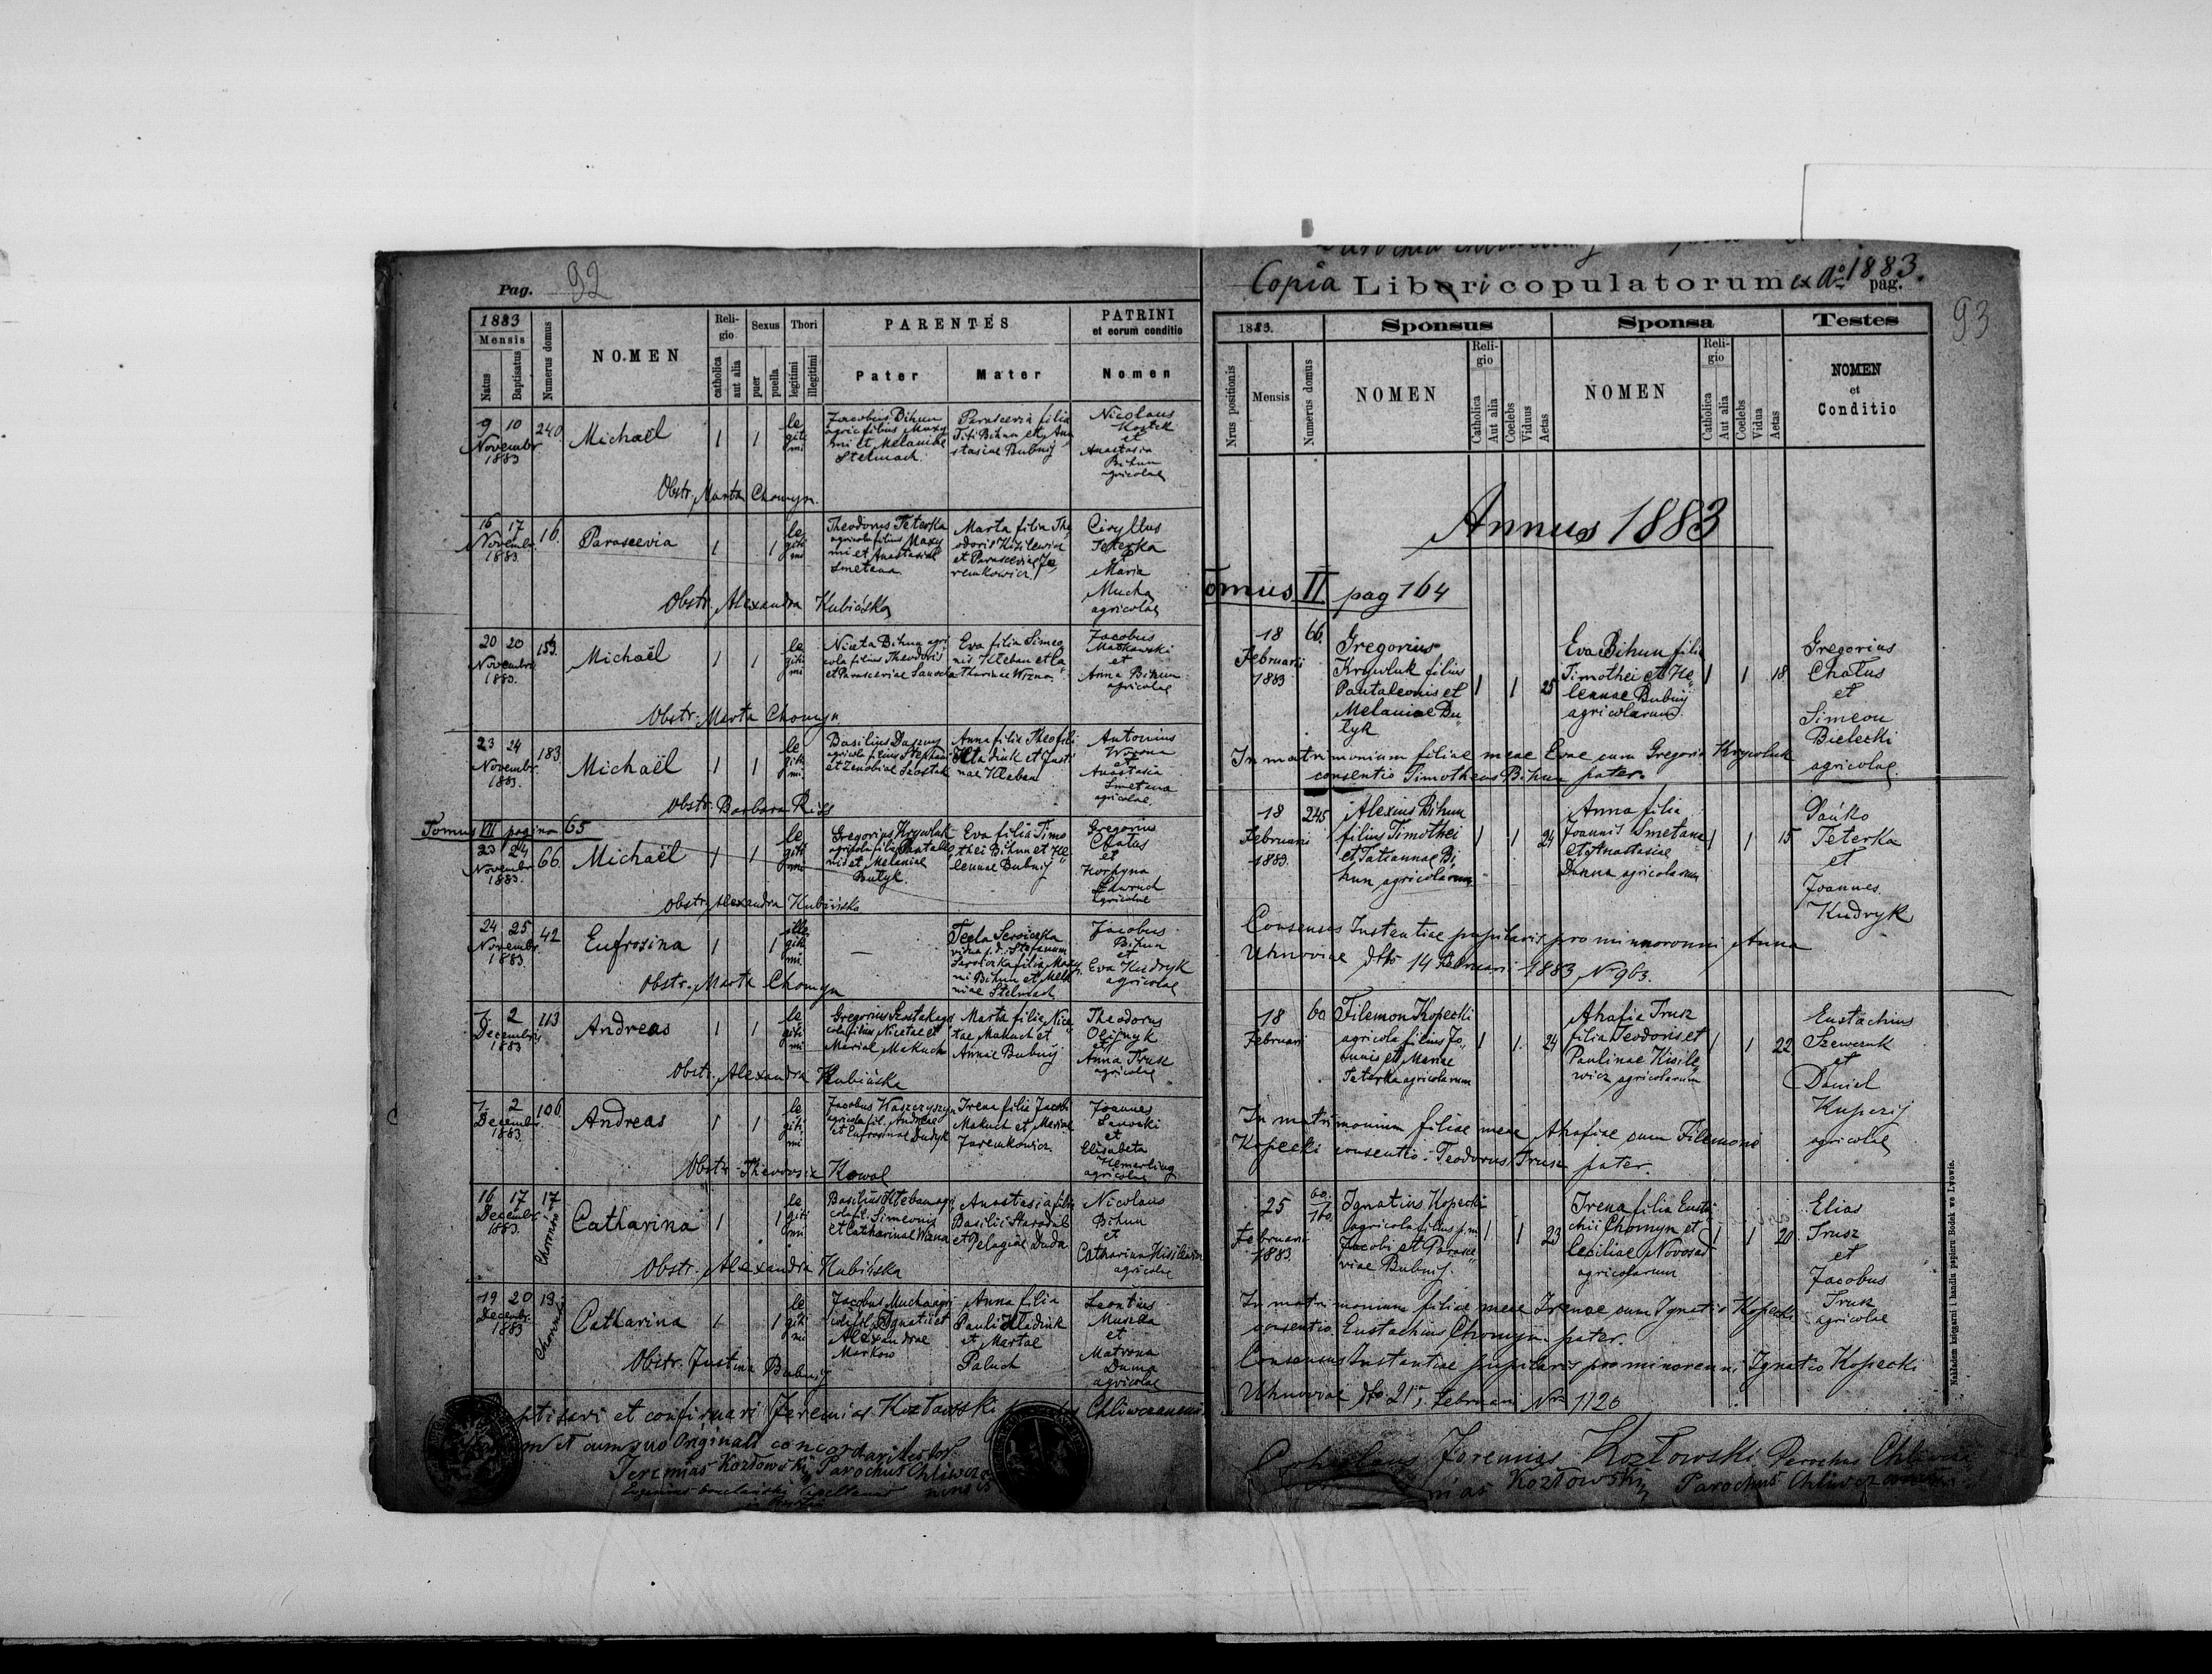 Pag. 92
1883
Mensis
Natus
Baptisatus
Numerus domus
NOMEN
Religio
catholica
aut alia
Sexus
puer
puella
Thori
legitimi
illegitimi
PARENTES
Pater
Mater
PATRINI
et eorum conditio
Nomen
9 10 240
Novembr
1883
Michaël
1 1
le
giti
mi
Jacobus Bihun
agric filius Maxy
mi et Melaniae
Stelmach.
Parascevia filia
Titi Bihun et Ana
stasiae Bubnij
Nicolaus
Kostek
et
Anastasia
Bihun
agricolae
Obstr. Marta Chomyn.
16 17 16.
Novembr.
1883.
Parascevia
1 1
le
giti
mi
Theodorus Teterka
agricola filius Maxy
mi et Anastasiae
Smetana
Marta filia The
odoris Kisilewicz
et Parasceviae Ja
remkowicz.
Ciryllus
Teterka
et
Maria
Mucha
agricolae
Obstr. Alexandra Kubińska
20 20 153.
Novembr
1883.
Michaël
1 1
le
giti
mi
Niceta Bihun agri
cola filius Theodoris
et Parasceviae Sanocka
Eva filia Simeo
nis Kleban et Ca
tharinae Wrona
Jacobus
Matkowski
et
Anna Bihun
agricolae
Obstr. Marta Chomyn.
23 24 183.
Novembr
1883.
Michaël
1 1
le
giti
mi
Basilius Daszny
agricola filius Stephani
et Zenobiae Szostak
Anna filia Theofili
Hladiuk et Justi
nae Kleban
Antonius
Wrona
et
Anastasia
Smetana
agricolae
Obstr. Barbara
Tomus VII pagina 65
23 24 66.
Novembr
1883.
Michaël
1 1
le
giti
mi
Gregorius Krywluk
agricola filius Pantale
nis et Melaniae
Butyk.
Eva filia Timo
thei Bihun et He
lennae Bubnij
Gregorius
Chatus
et
Horpyna
agricolae
Obstr. Alexandra Kubińska
24 25 42
Novembr
1883.
Eufrosina
1 1
ille
giti
mi.
—
Tecla
vidua p. d. Stefanum
filia Maxy
mi Bihun et Mela
niae Stelmach
Jacobus
Bihun
et
Eva Kudryk
agricolae
Obstr. Marta Chomyn
1 2 113
Decembris
1883
Andreas
1 1
le
giti
mi
Gregorius Szostak agri
cola filius Nicetae et
Mariae Makuch
Marta filia Nice
tae Makuch et
Annae Bubnij
Theodorus
Olijnyk
et
Anna Trusz
agricolae
Obstr. Alexandra Kubińska
1 2 106
Decembr.
1883.
Andreas
1 1
le
giti
mi
Jacobus Waszczyszyn
agricola fil. Andreae
et Eufrosinae Dudyk
Irena filia Jacobi
Makuch et Mariae
Jaremkowicz.
Joannes
Sanocki
et
Elisabeta
Hemerling
agricolae
Obstr. Theodosia Kowal
16 17 17
Decembr.
1883.
Catharina
1 1
le
giti
mi
Basilius Kleban agri
cola fil. Simeonis
et Catharinae Wrona
Anastasia filia
Basilii Starodub
et Pelagiae Duda
Nicolaus
Bihun
et
Catharina Kisilewicz
agricolae
Obstr. Alexandra Kubińska
19 20 13.
Decembr.
1883
Catharina
1 1
le
giti
mi
Jacobus Mucha agri
cola fil. Ignatii et
Alexandrae
Markow
Anna filia
Pauli Hladiuk
et Martae
Paluch
Leontius
Muszka
et
Matrona
Duma
agricolae
Obstr. Justina Bubnij
ptisavi et confirmavi Jeremias Kozłowski Chliwczanensis
et cum suo Originali concordari testor.
Jeremias Kozłowski Parochus Chliwcza
nensis
Copia Libri copulatorum ex Ao 1883.
pag.
93
1883.
Nrus positionis
Mensis
Numerus domus
Sponsus
NOMEN
Religio
Catholica
Aut alia
Coelebs
Viduus
Aetas
Sponsa
NOMEN
Religio
Catholica
Aut alia
Coelebs
Vidua
Aetas
Testes
NOMEN
et
Conditio
Annus 1883
Tomus II pag 164
18 66.
Februarii
1883
Gregorius
Krywluk filius
Pantaleonis et
Melaniae Bu
tyk
1 1 25
Eva Bihun filia
Timothei et He
lennae Bubnij
agricolarum.
1 1 18
Gregorius
Chatus
et
Simeon
Bielecki
agricolae.
In matrimonium filiae meae Evae cum Gregorio Krywluk
consentio Timotheus Bihun pater.
18 245
Februarii
1883.
Alexius Bihun
filius Timothei
et Tatiannae Bi
hun agricolarum.
1 1 24
Anna filia
Joannis Smetana
et Anastasiae
Danna agricolarum
1 1 15
Dańko
Teterka
et
Joannes
Kudryk
Consensus Instantiae pupilaris pro minorenni Anna
Uhnoviae dtto 14 Februari 1883 Nr 963.
18 60.
Februari
Filemon Kopecki
agricola filius Jo
annis et Mariae
Teterka agricolarum
1 1 24
Ahafia Trusz
filia Teodoris et
Paulinae Kisile
wicz agricolarum
1 1 22
Eustachius
Szewczuk
et
Daniel
Kupczij
agricolae
In matrimonium filiae meae Ahafiae cum Filemono
Kopecki consentio. Teodorus Trusz pater.
25 60. 160
Februarii
1883
Ignatius Kopecki
agricola filius p.m
Jacobi et Parasce
viae Bubnij.
1 1 23
Irena filia Eusta
chii Chomyn et
Ceciliae Novosad
agricolarum
1 1 20
Elias
Trusz
et
Jacobus
Trusz
agricolae
In matrimonium filiae meae Irenae cum Ignatio Kopecki
consentio. Eustachius Chomyn pater.
Consensus Instantiae pupilaris pro minorenni Ignatio Kopecki
Uhnoviae dto 21 Februari Nr 1126
Jeremias Kozłowski Parochus
mias Kozłowski Parochus
Nakładem księgarni i handlu papieru Bodek we Lwowie.